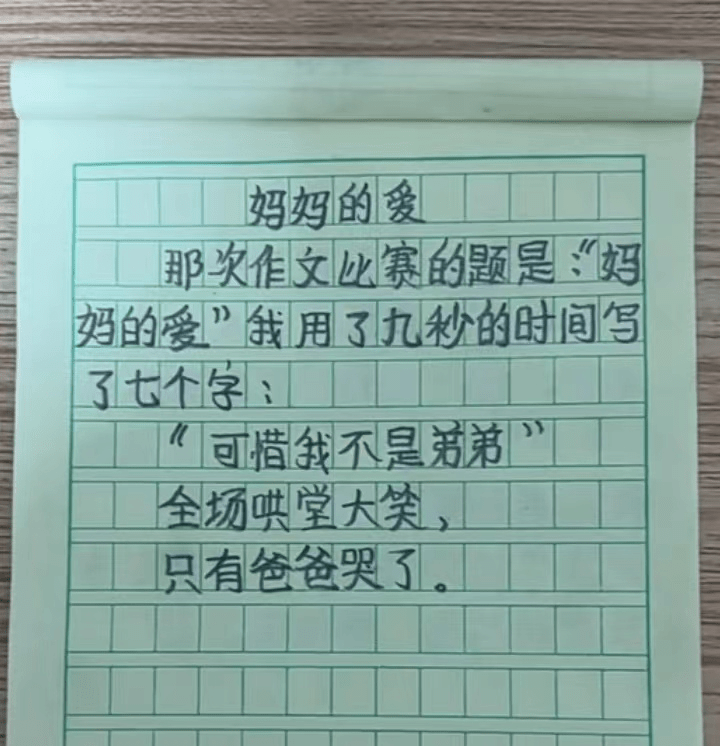 妈妈的爱
那次作文比赛的题是:“妈
妈的爱”我用了九秒的时间写
了七个字:
“可惜我不是弟弟”
全场哄堂大笑,
只有爸爸哭了。